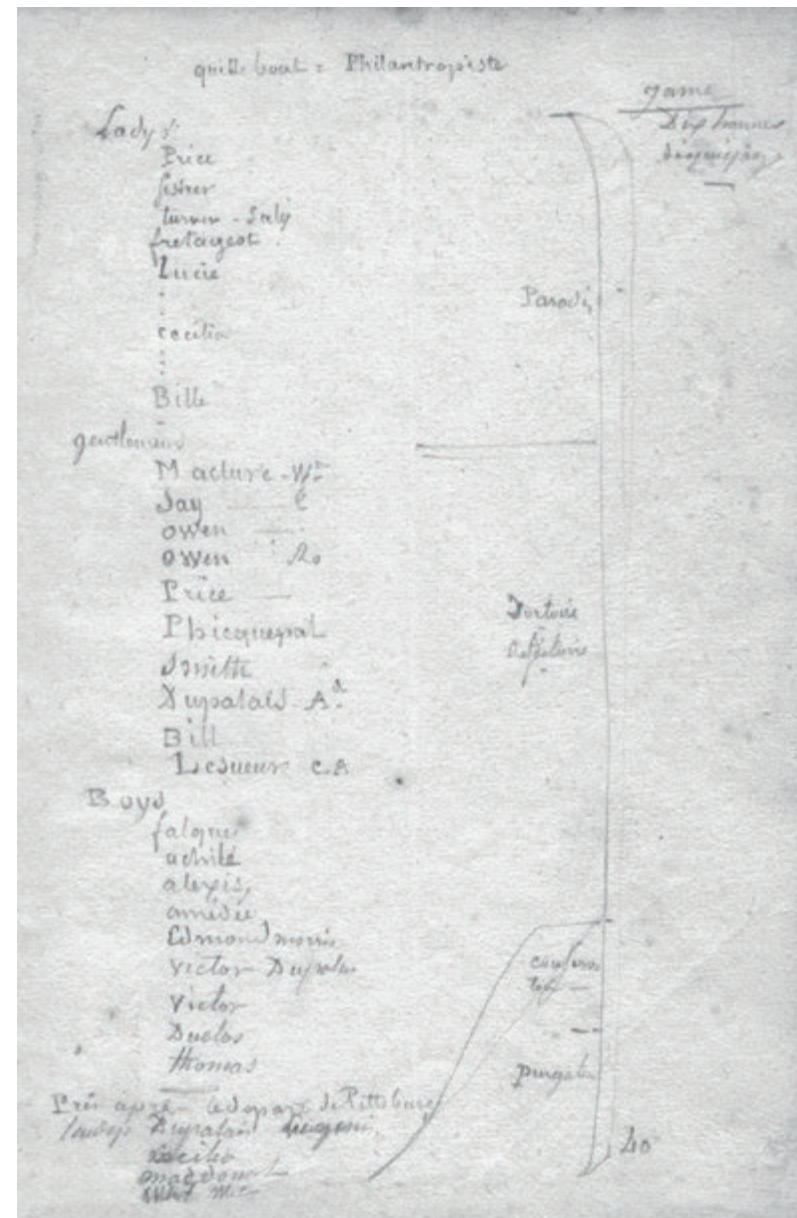 quille boat = Philantropiste
Lady's
Price
sistrer
turner - Saly
fretageot
Lucie
cecilia
Bille
gentlemens
Maclure - Wm
Say
owen
owen Ro
Price
Phicquepal
Smith
Dupalais Ad
Bill
Lesueur C.A
Boys
falque
achile
alexis,
amédée
Edmond morris
Victor Dupalais
Victor
Duclos
thomas
Pris après le depart de Pittsburg
Dupalais
cecilia
macdonal
game
Dix hommes
Paradis
Dortoire
purgato
40